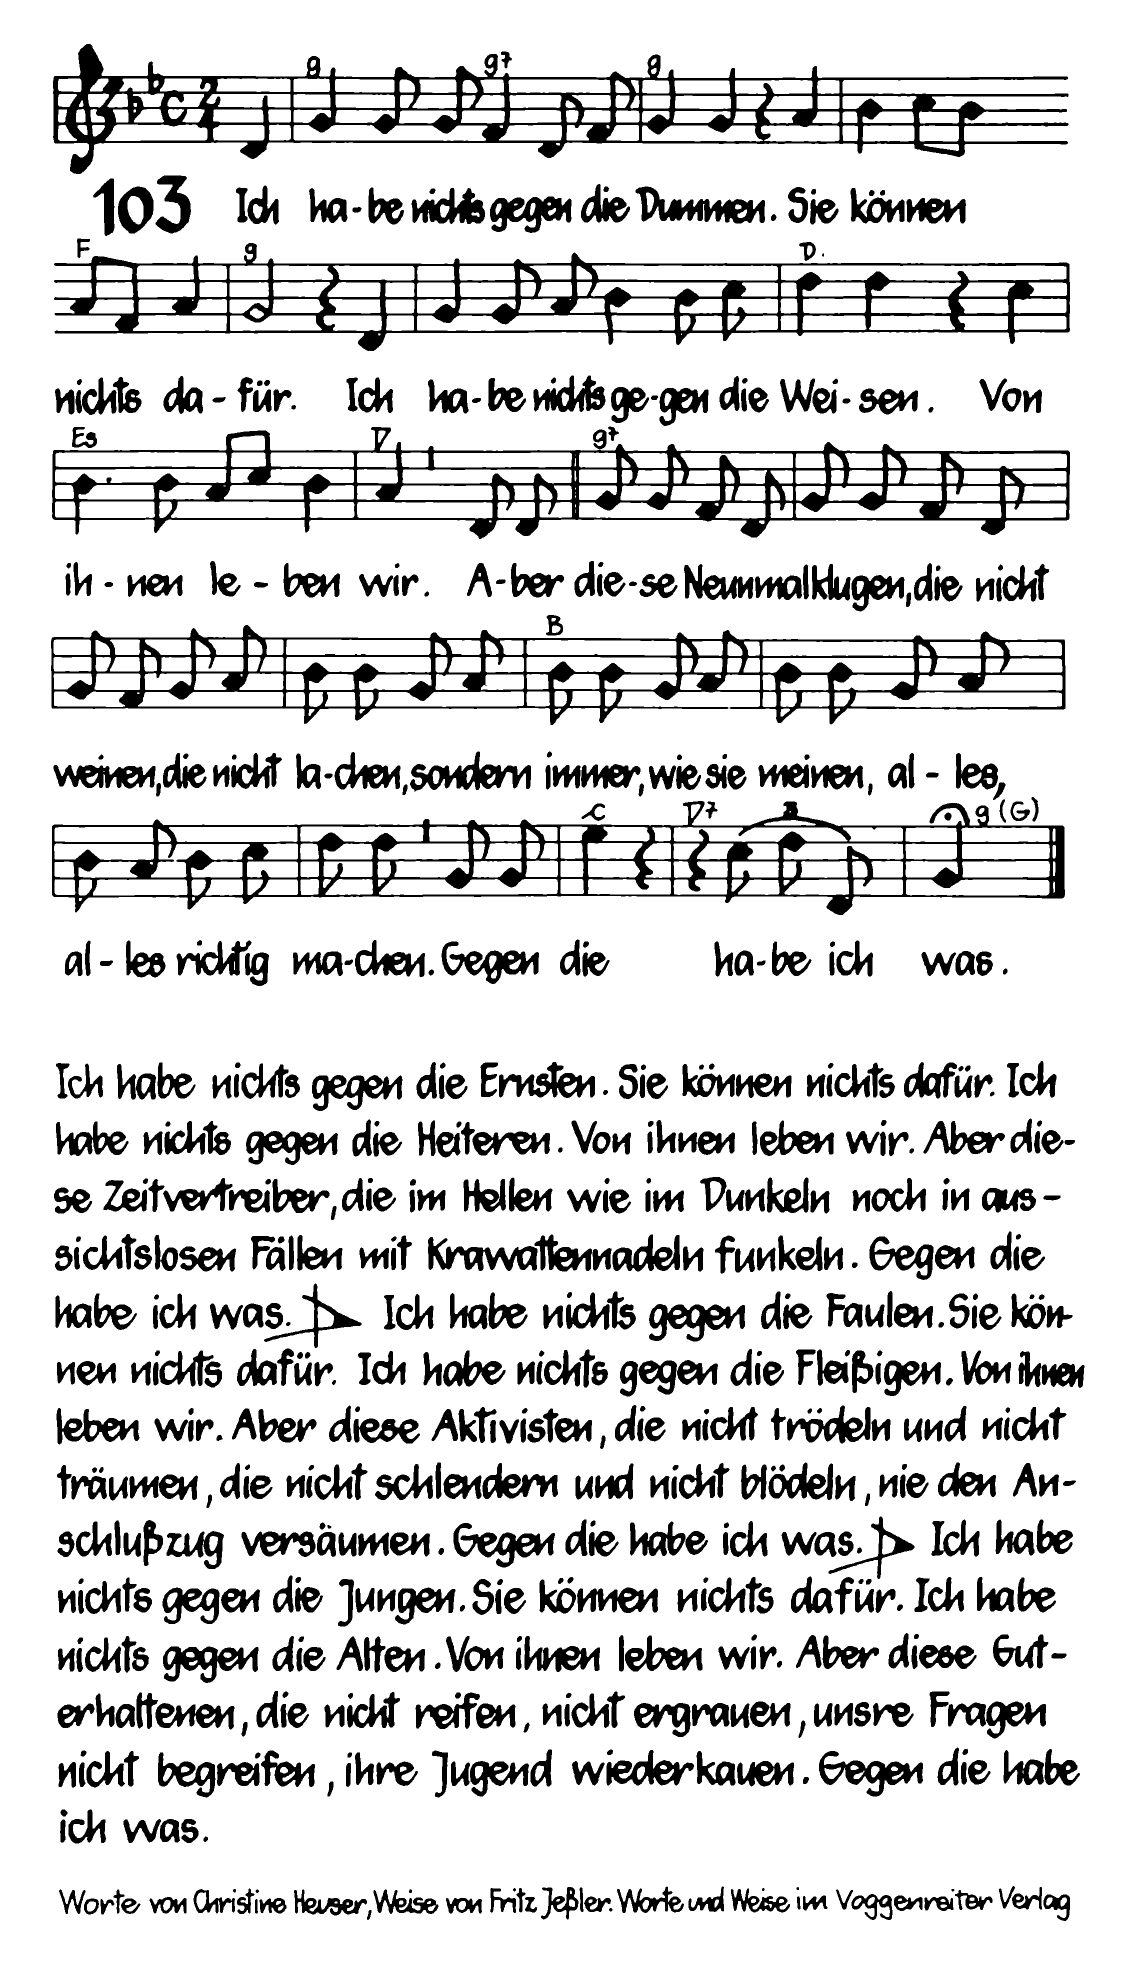 g g7 g
103 Ich ha-be nichts gegen die Dummen. Sie können
F g D.
nichts da-für. Ich ha-be nichts ge-gen die Wei-sen. Von
Es D g7
ih-nen le-ben wir. A-ber die-se Neunmalklugen, die nicht
B
weinen, die nicht la-chen, sondern immer, wie sie meinen, al-les,
C D7 g (G)
al-les richtig ma-chen. Gegen die ha-be ich was.
Ich habe nichts gegen die Ernsten. Sie können nichts dafür. Ich
habe nichts gegen die Heiteren. Von ihnen leben wir. Aber die-
se Zeitvertreiber, die im Hellen wie im Dunkeln noch in aus-
sichtslosen Fällen mit Krawattennadeln funkeln. Gegen die
habe ich was. Ich habe nichts gegen die Faulen. Sie kön-
nen nichts dafür. Ich habe nichts gegen die Fleißigen. Von ihnen
leben wir. Aber diese Aktivisten, die nicht trödeln und nicht
träumen, die nicht schlendern und nicht blödeln, nie den An-
schlußzug versäumen. Gegen die habe ich was. Ich habe
nichts gegen die Jungen. Sie können nichts dafür. Ich habe
nichts gegen die Alten. Von ihnen leben wir. Aber diese Gut-
erhaltenen, die nicht reifen, nicht ergrauen, unsre Fragen
nicht begreifen, ihre Jugend wiederkauen. Gegen die habe
ich was.
Worte von Christine Heuser, Weise von Fritz Jeßler. Worte und Weise im Voggenreiter Verlag